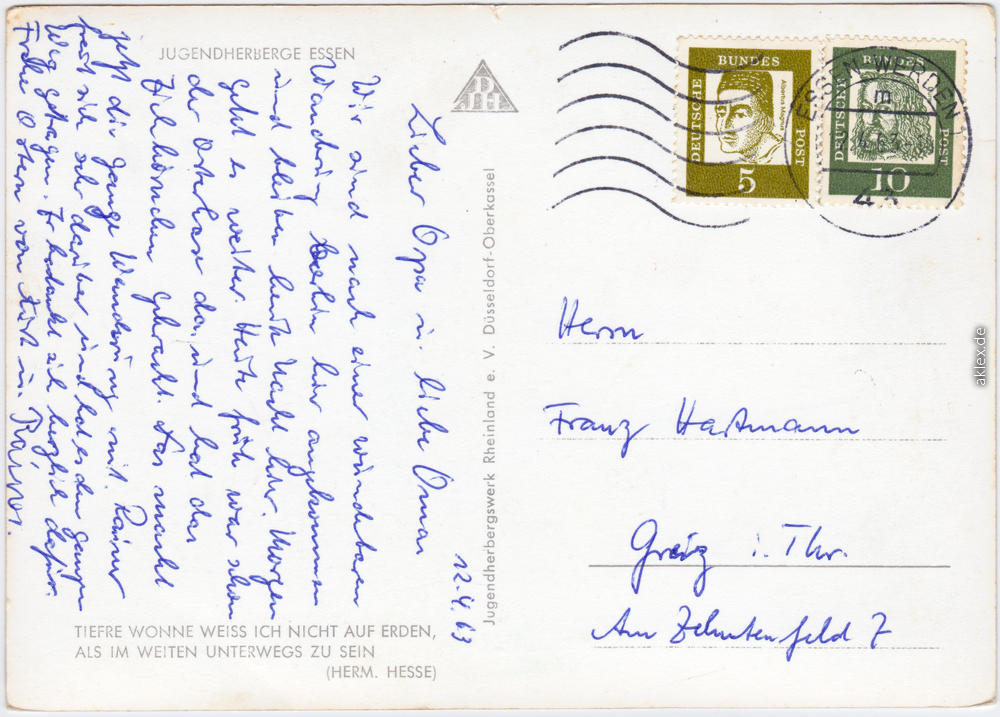 JUGENDHERBERGE ESSEN
DJH
12.4.63
Lieber Opa u. liebe Oma,
Wir sind nach einer wunderbaren
Wanderung hier angekommen
und bleiben heute Nacht hier. Morgen
geht es weiter. Heute früh war schon
der Osterhase da und hat das
gebracht. Das macht
jetzt die ganze Wanderung mit. Rainer
freut sich sehr darüber und hat es den ganzen
Weg getragen. Er bedankt sich herzlich dafür.
Frohe Ostern von u. Rainer.
TIEFRE WONNE WEISS ICH NICHT AUF ERDEN,
ALS IM WEITEN UNTERWEGS ZU SEIN
(HERM. HESSE)
Jugendherbergswerk Rheinland e. V. Düsseldorf-Oberkassel
DEUTSCHE BUNDES POST
Albertus Magnus
5
DEUTSCHE BUNDES POST
10
ESSEN-WERDEN 1
43
Herrn
Franz Hartmann
Greiz i. Thr.
Am Zehntenfeld 7
aklex.de